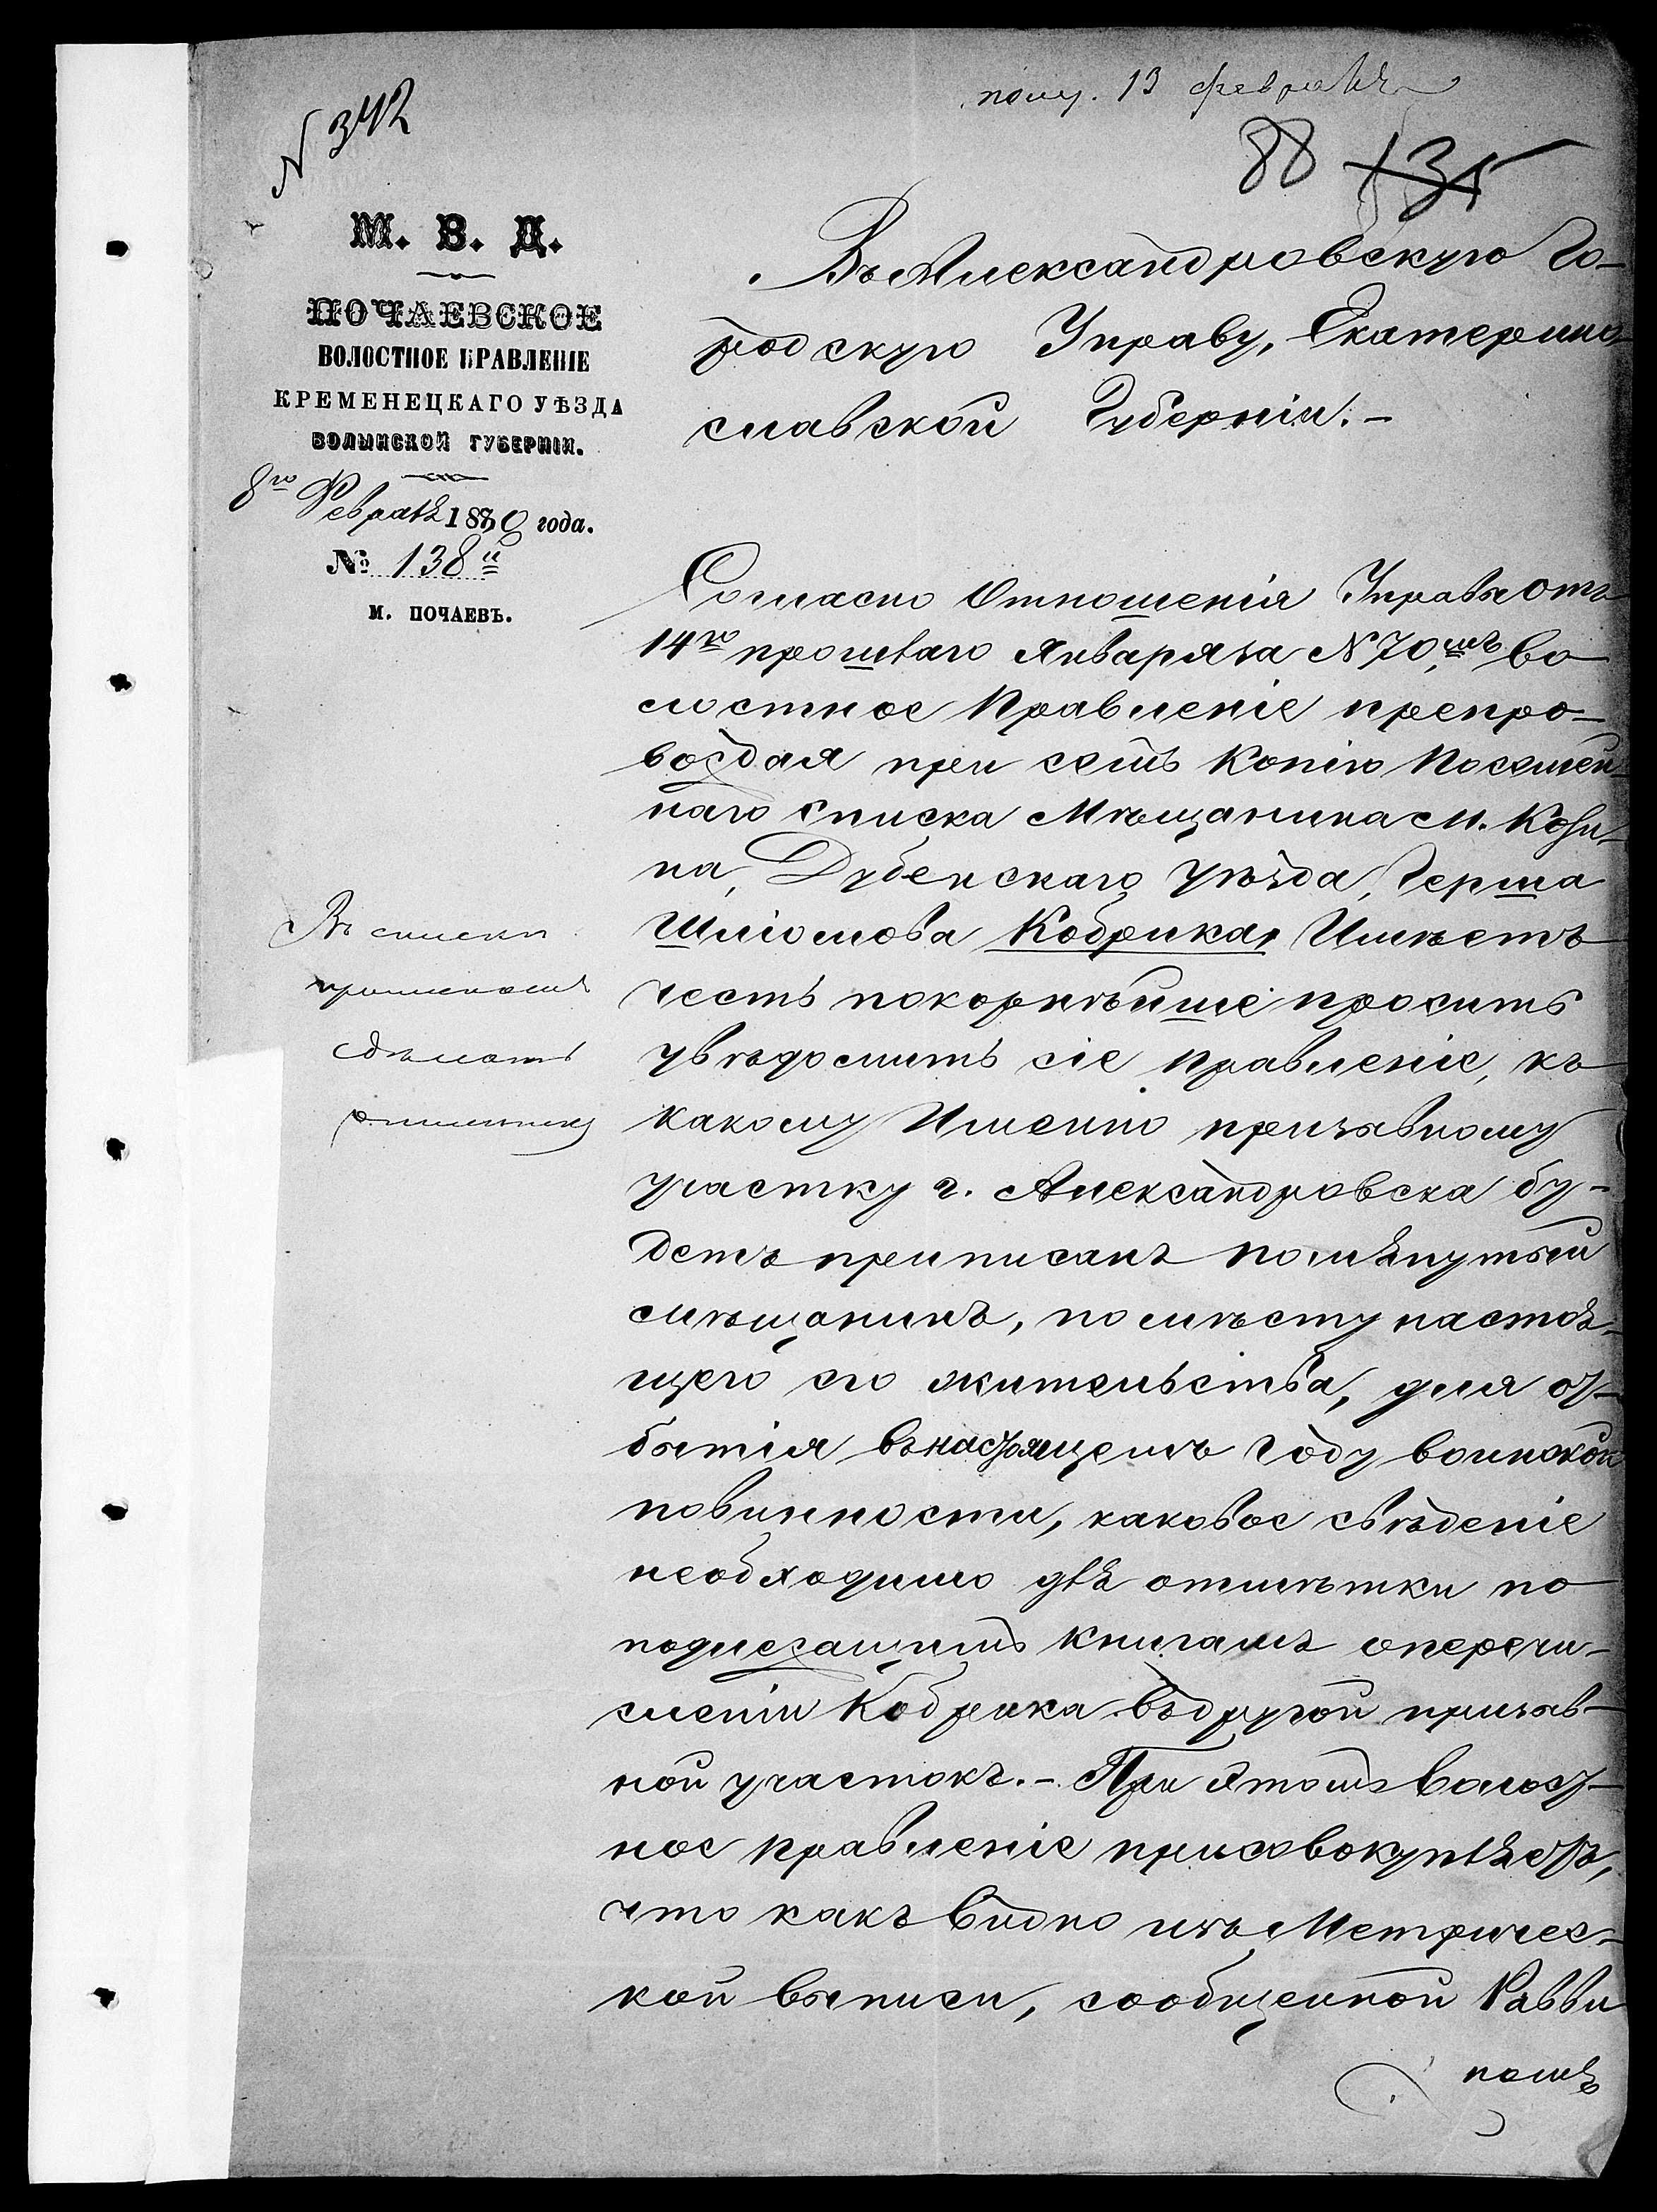 полу. 13 февраля
N 342
88 135
М. В. Д.
ПОЧАЕВСКОЕ
ВОЛОСТНОЕ ПРАВЛЕНІЕ
КРЕМЕНЕЦКАГО УѢЗДА
ВОЛЫНСКОЙ ГУБЕРНІИ.
8го Февраля 1880 года.
№ 138й
М. ПОЧАЕВЪ.
Въ Александровскую Го-
родскую Управу, Екатерино-
славской Губерніи.-
Согласно Отношенія Управы отъ
14го прошлаго Января за N 70мъ, во
лостное Правленіе препро-
вождая при семъ Копію Посемей-
наго списка Мѣщанина м. Кози-
на, Дубенскаго уѣзда, Герша
Шліомова Кобрика, Имѣетъ
честь покорнѣйше просить
увѣдомить сіе Правленіе, къ
какому Именно призывному
участку г. Александровска бу-
детъ приписанъ помянутый
мѣщанинъ, по мѣсту настоя-
щего его жительства, для от-
бытія въ настоящемъ году воинской
повинности, каковое свѣденіе
необходимо для отмѣтки по
подлежащимъ книгамъ о перечи-
сленіи Кобрика въ другой призыв-
ной участокъ.- При этомъ Волост-
ное Правленіе присовокупляетъ,
что какъ видно изъ Метричес-
кой выписи, сообщенной Равви
номъ
Въ списки
сдѣлать
отмѣтку